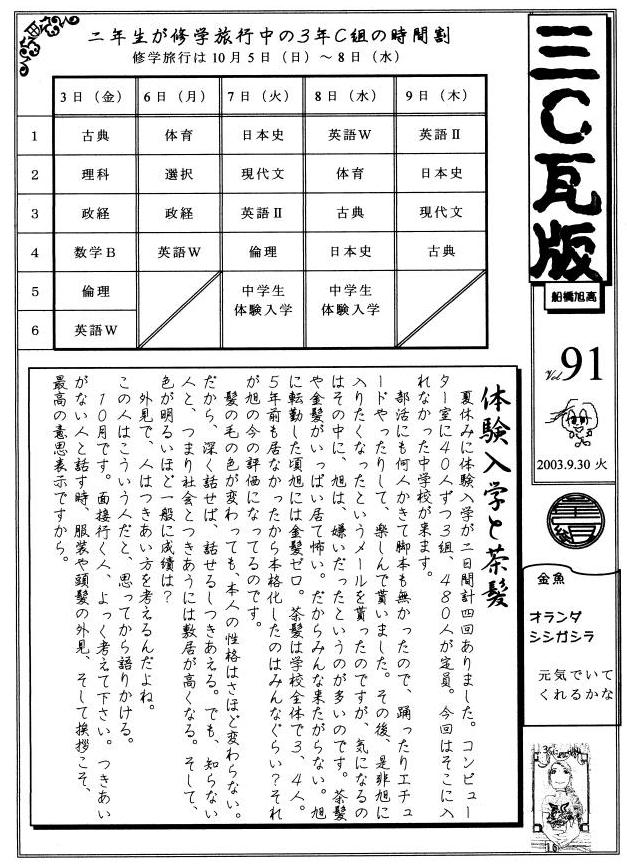 三C瓦版
船橋旭高
Vol.91
2003.9.30 火
金魚
オランダ
シシガシラ
元気でいて
くれるかな
二年生が修学旅行中の3年C組の時間割
修学旅行は10月5日(日)~8日(水)
3日(金) 6日(月) 7日(火) 8日(水) 9日(木)
1 古典 体育 日本史 英語W 英語Ⅱ
2 理科 選択 現代文 体育 日本史
3 政経 政経 英語Ⅱ 古典 現代文
4 数学B 英語W 倫理 日本史 古典
5 倫理 中学生 体験入学 中学生 体験入学
6 英語W
体験入学と茶髪
夏休みに体験入学が二日間計四回ありました。コンピュー
ター室に40人ずつ3組、480人が定員。今回はそこに入
れなかった中学校が来ます。
部活にも何人かきて脚本も無かったので、踊ったりエチュ
ードやったりして、楽しんで貰いました。その後、是非旭に
入りたくなったというメールを貰ったのですが、気になるの
はその中に、旭は、嫌いだったというのが多いのです。茶髪
や金髪がいっぱい居て怖い。だからみんな来たがらない。旭
に転勤した頃旭には金髪ゼロ。茶髪は学校全体で3、4人。
5年前も居なかったから本格化したのはみんなぐらい?それ
が旭の今の評価になってるのです。
髪の毛の色が変わっても、本人の性格はさほど変わらない。
だから、深く話せば、話せるしつきあえる。でも、知らない
人と、つまり社会とつきあうには敷居が高くなる。そして、
色が明るいほど一般に成績は?
外見で、人はつきあい方を考えるんだよね。
この人はこういう人だと、思ってから語りかける。
10月です。面接行く人、よっく考えて下さい。つきあい
がない人と話す時、服装や頭髪の外見、そして挨拶こそ、
最高の意思表示ですから。